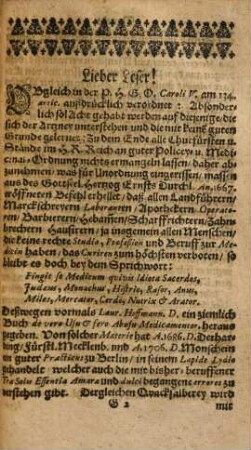 Lieber Leser!
Obgleich in der P. H. G. O. Caroli V. am 134.
artic. ausdrücklich verordnet: Absonder-
lich sol Acht gehabt werden auf diejenige, die
sich der Artzney unterstehen und die mit keinē guten
Grunde gelernet; Zu dem Ende alle Churfürsten u.
Stände im H. R. Reich an guter Policey u. Medi-
cinal-Ordnung nichts ermangeln lassen, daher ab-
zunehmen, was für Unordung eingerissen, massen
aus des Gottsel. Hertzog Ernsts Durchl. An. 1667.
eröffneten Befehl erhellet, daß allen Landführern
Marcktschreyern, Laboranten, Apothekern, Operato-
ren, Barbierern, Hebamen, Scharffrichtern, Zahn-
rechern, Hausirern, ja insgemein allen Menschen,
die keine rechte Studia, Profession und Beruff zur Me-
dicin haben, das Curiren zum höchsten verboten, so
bliebe es doch bey dem Sprichwort:
Fingit se Medicum quivis Idiota Sacerdos,
Judæus, Monachus, Histrio, Rasor, Anus,
Miles, Mercator, Cerdo, Nutrix & Arator.
Deßwegen vormals Laur. Hoffmann. D. ein ziemlich
Buch de vero Usu & fero Abusu Medicamentor. heraus
gegeben. Von solcher Materie hat A. 1686. D. Dethar-
ding, Fürstl. Mecklenb. und A. 1706. D. Monschein
ein guter Practicus zu Berlin, in seinem Lapide Lydio
gehandelt, welcher auch die mit bisher beruffener
Tra Salis Essentia Amara und dulci begangene errores zu
verstehen gibt. Dergleichen Quacksalberey wird
G 2 mit